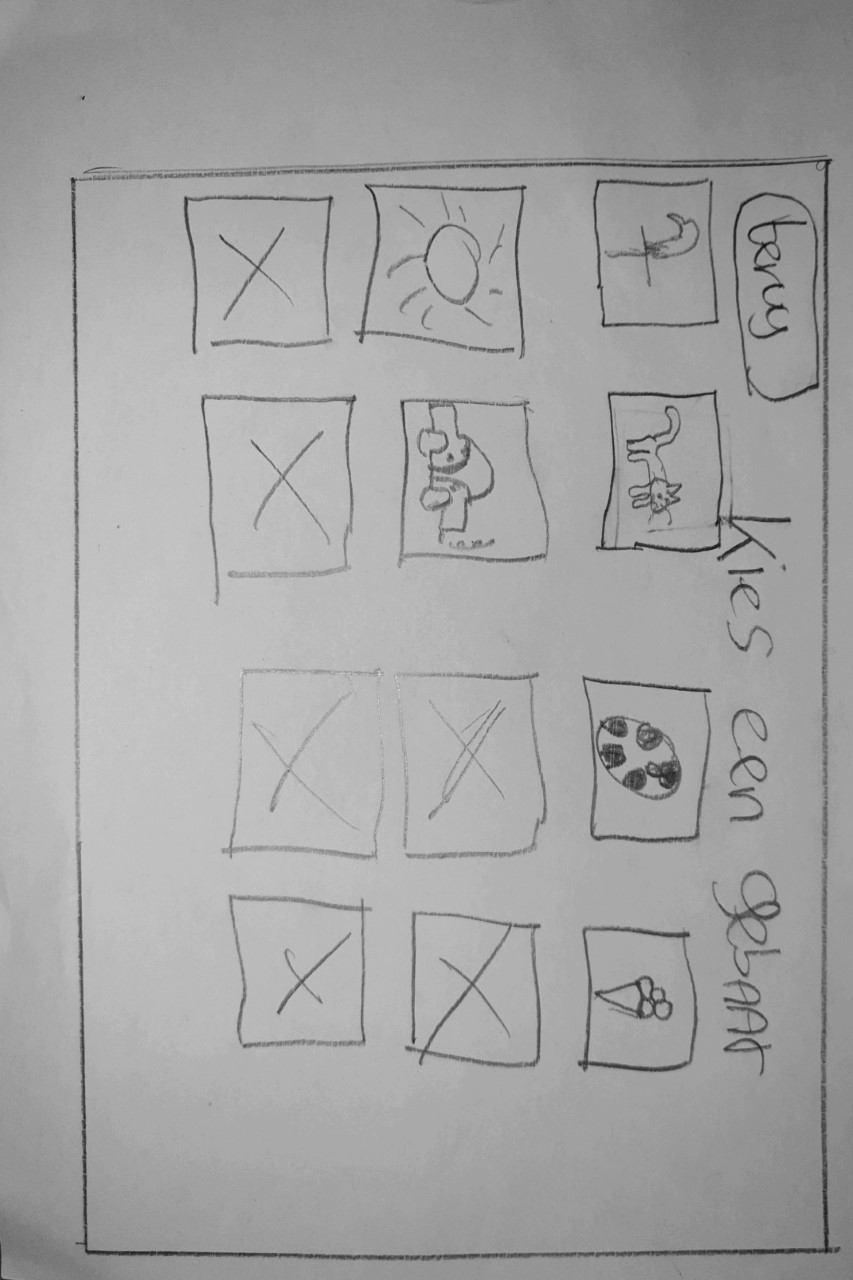 terug
Kies een gebaar